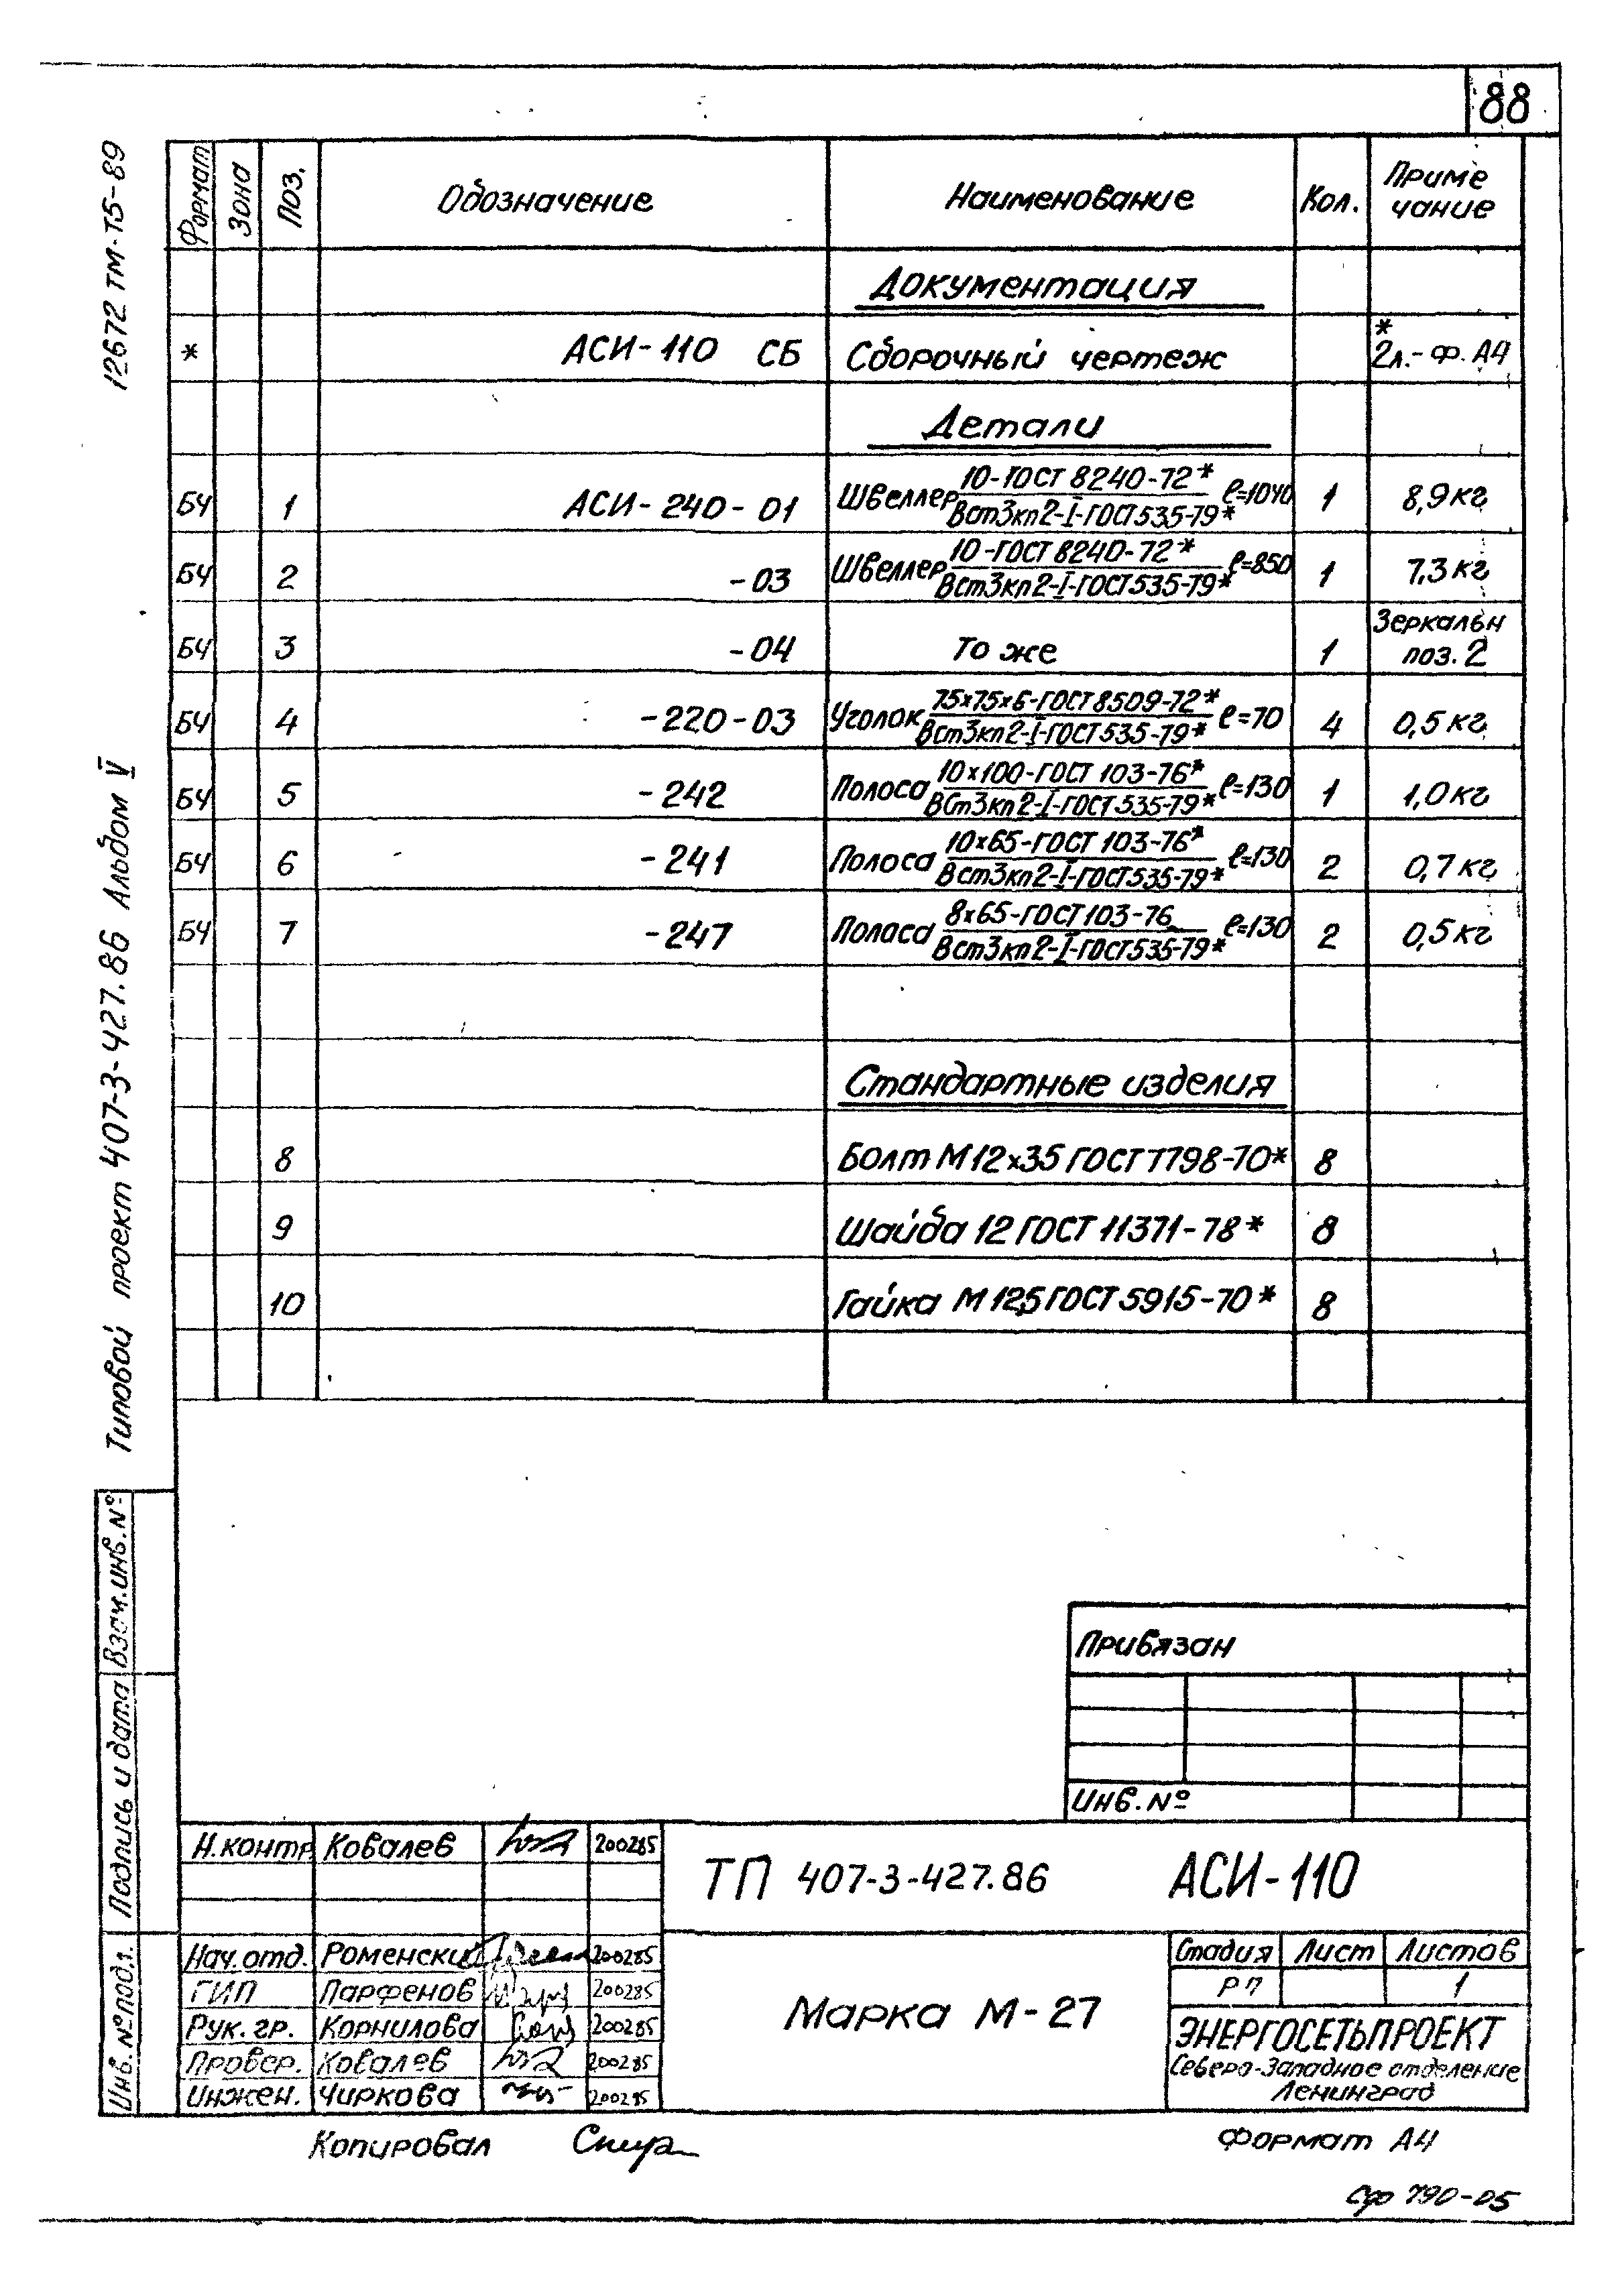 88
12672 ТМ-Т5-89
Типовой проект 407-3-427.86 Альбом V
Формат Зона Поз. Обозначение Наименование Кол. Приме
чание
Документация
* АСИ-110 СБ Сборочный чертеж * 2л.-ф. А4
Детали
БЧ 1 АСИ-240-01 Швеллер 10-ГОСТ 8240-72* ℓ=1040 1 8,9 кг
ВСт3кп2-I-ГОСТ535-79*
БЧ 2 -03 Швеллер 10-ГОСТ 8240-72* ℓ=850 1 7,3 кг
ВСт3кп2-I-ГОСТ535-79*
БЧ 3 -04 То же 1 Зеркальн
поз. 2
БЧ 4 -220-03 Уголок 75х75х6-ГОСТ 8509-72* ℓ=70 4 0,5 кг
ВСт3кп2-I-ГОСТ535-79*
БЧ 5 -242 Полоса 10х100-ГОСТ 103-76* ℓ=130 1 1,0 кг
ВСт3кп2-I-ГОСТ535-79*
БЧ 6 -241 Полоса 10х65-ГОСТ 103-76* ℓ=130 2 0,7 кг
ВСт3кп2-I-ГОСТ535-79*
БЧ 7 -247 Полоса 8х65-ГОСТ 103-76 ℓ=130 2 0,5 кг
ВСт3кп2-I-ГОСТ535-79*
Стандартные изделия
8 Болт М12х35 ГОСТ 7798-70* 8
9 Шайба 12 ГОСТ 11371-78* 8
10 Гайка М12,5 ГОСТ 5915-70* 8
Взам.инв.№
Подпись и дата
Инв.№подл.
Привязан
Инв.№
Н.контр. Ковалев 200285
Нач.отд. Роменский 200285
ГИП Парфенов 200285
Рук.гр. Корнилова 200285
Провер. Ковалев 200285
Инжен. Чиркова 200285
ТП 407-3-427.86 АСИ-110
Марка М-27
Стадия Лист Листов
РП 1
ЭНЕРГОСЕТЬПРОЕКТ
Северо-Западное отделение
Ленинград
Копировал
Формат А4
Сфо 790-05